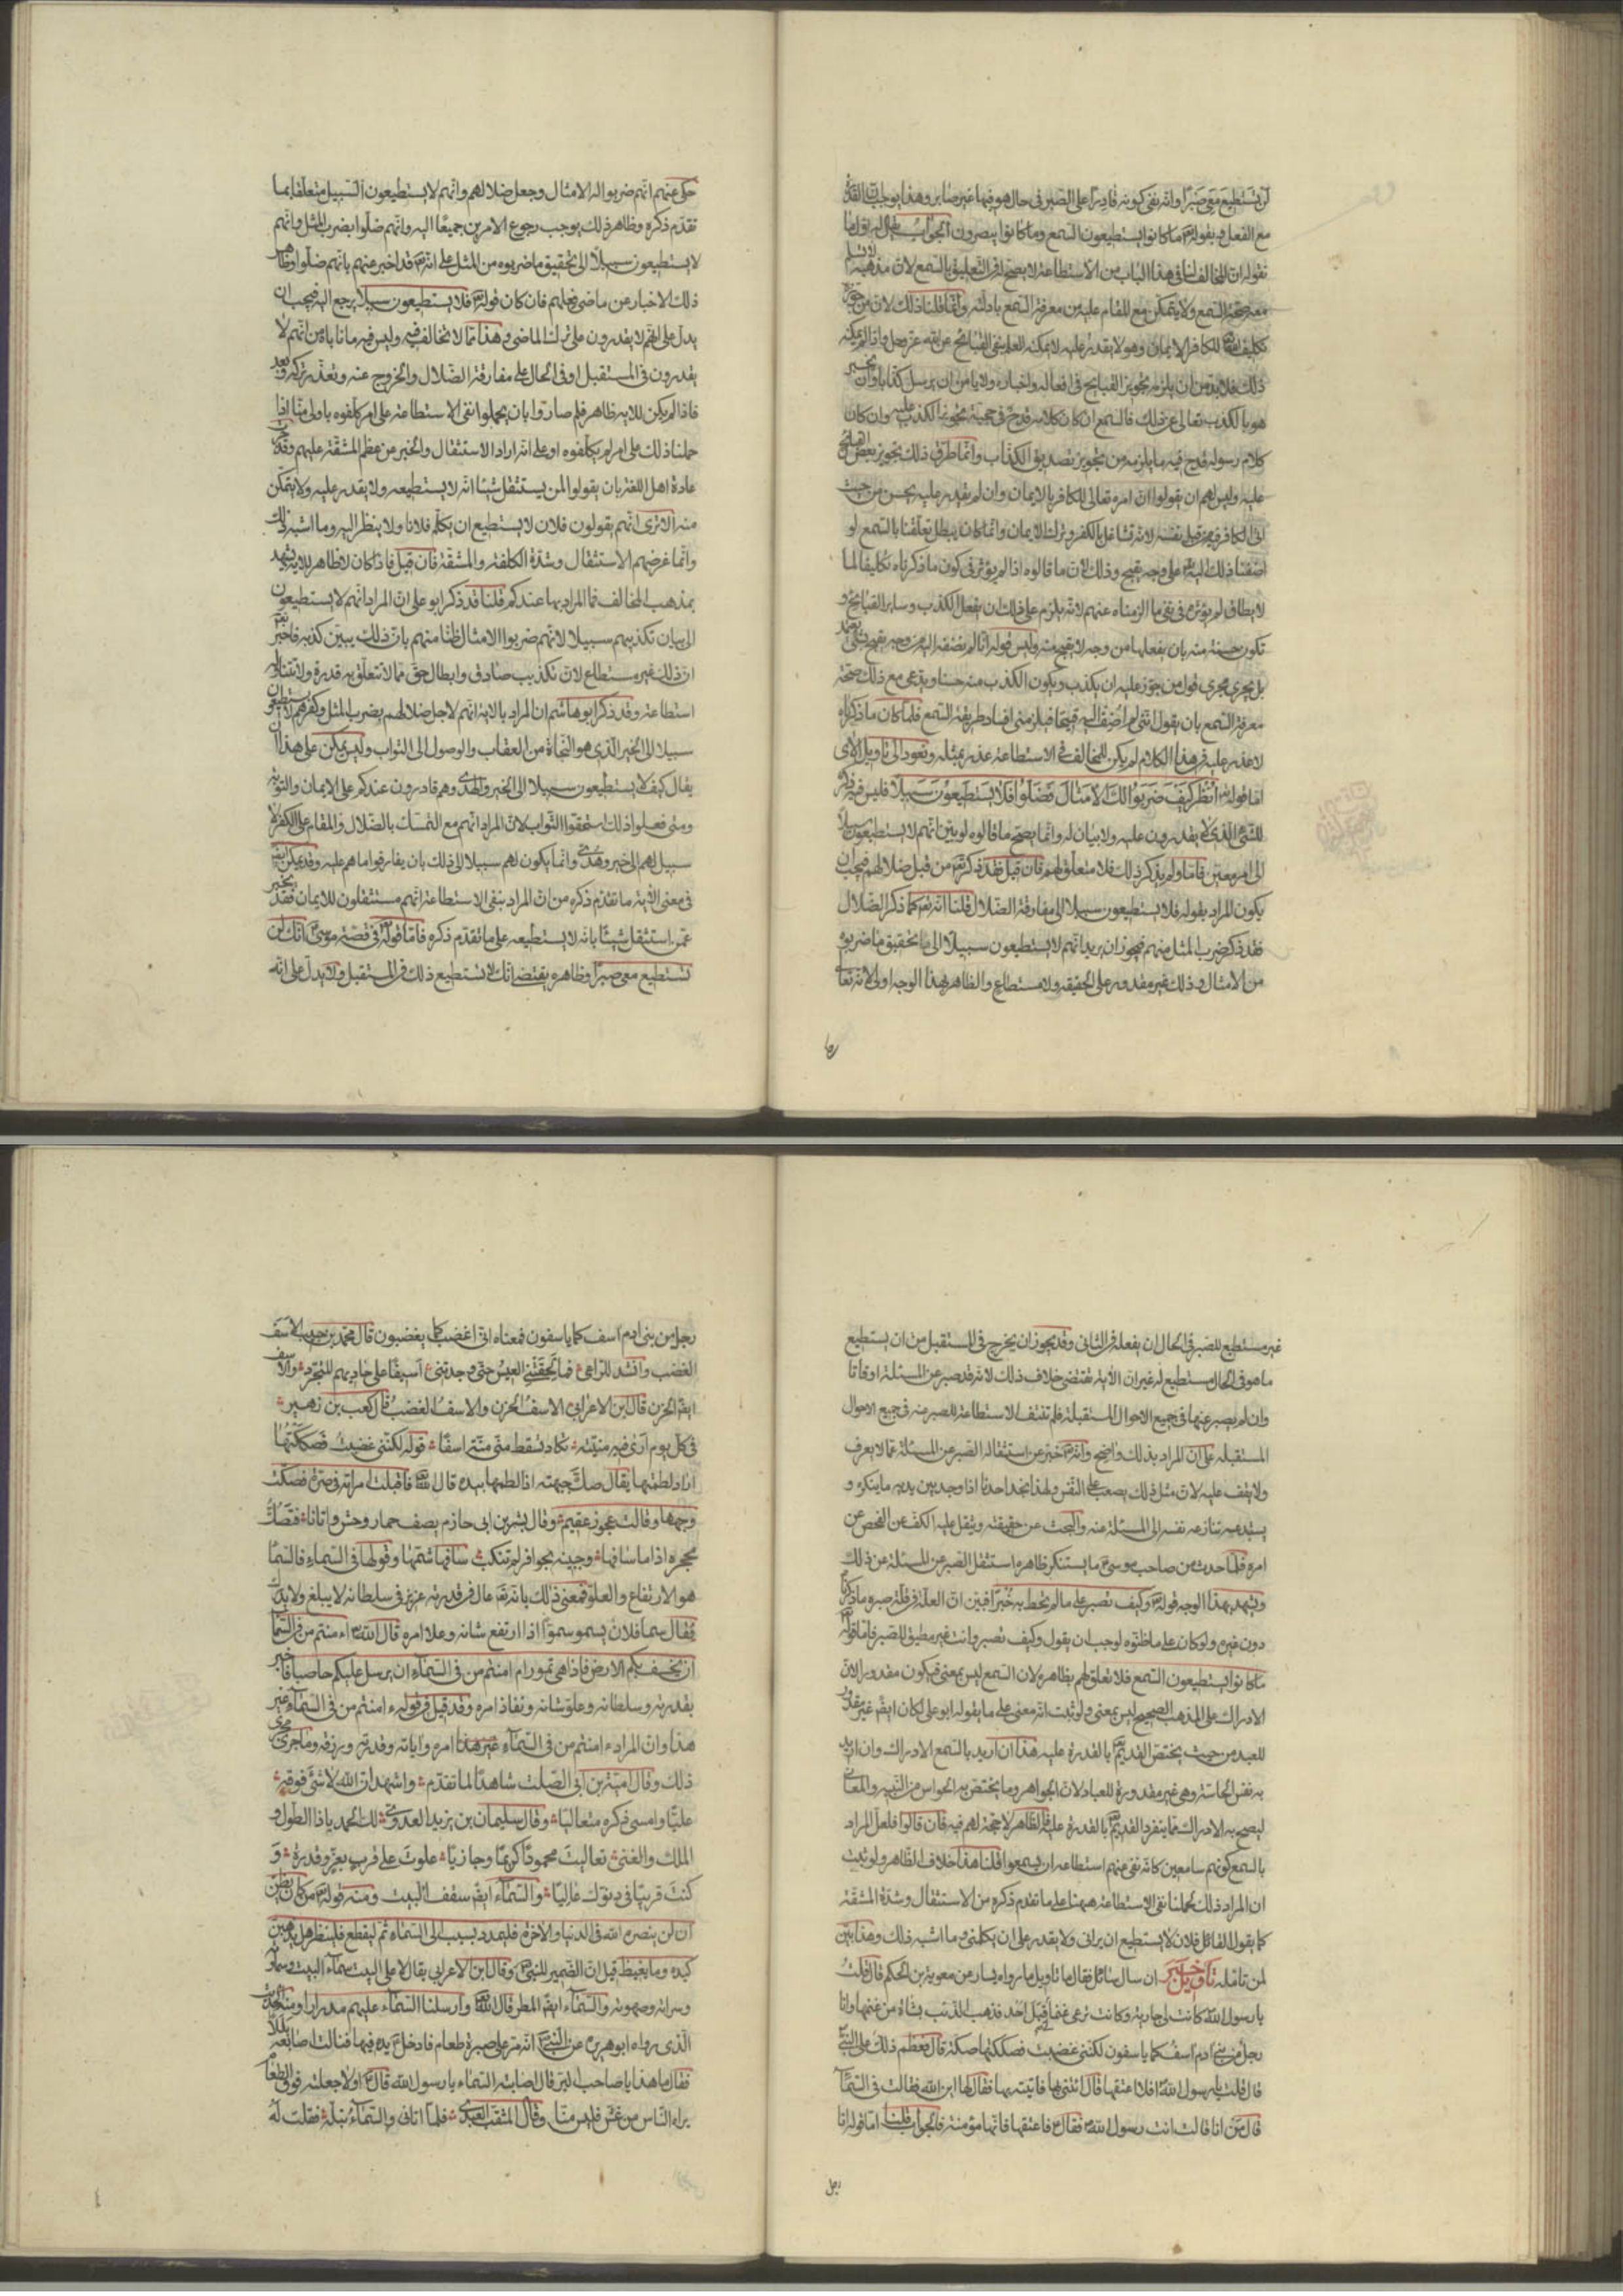 لن تستطيع معي صبرا وانه نفى كونه قادرا على الصبر في حال هو فيها غير صابر وهذا يوجب ان القدرة
مع الفعل وبقوله تع ما كانوا يستطيعون السمع وما كانوا يبصرون الجواب يقال له اول ما
نقوله ان المخالف لنا في هذا الباب من الاستطاعة لا يصح له فيه التعلق بالسمع لان مذهبه لا يسلم
معه صحة السمع ولا يتمكن مع المقام عليه من معرفة السمع بادلته وانما قلنا ذلك لان من جوز
تكليف الله تع الكافر الايمان وهو لا يقدر عليه لا يمكنه العلم بنفى القبائح عن الله عز وجل واذا لم يمكنه
ذلك فلا بد من ان يلزمه تجويز القبايح في افعاله واخباره ولا يامن ان يرسل كذابا وان يخبر
هو بالكذب تعالى عن ذلك فالسمع ان كان كلامه قدح في حجيته تجويز الكذب عليه وان كان
كلام رسوله قدح فيه ما يلزمه من تجويز تصديق الكذاب وانما طرق ذلك تجويز بعض القبايح
عليه وليس لهم ان يقولوا ان امره تعالى الكافر بالايمان وان لم يقدر عليه يحسن من حيث
اتى الكافر فيه من قبل نفسه لانه تشاغل بالكفر وترك الايمان وانما كان يبطل تعلقنا بالسمع لو
اضفنا ذلك اليه تع على وجه يقبح وذلك لان ما قالوه اذا لم يؤثر في كون ما ذكرناه تكليفا لما
لا يطاق لم يؤثر في نفى ما الزمناه عنهم لانه يلزم على ذلك ان يفعل الكذب وساير القبايح و
تكون حسنة منه بان يفعلها من وجه لا يقبح منه وليس قوله انا لم نضفه اليه من وجه يقبح بشئ يعتمد
بل يجري مجرى قول من جوز عليه ان يكذب ويكون الكذب منه حسنا ويدعي مع ذلك صحة
معرفة السمع بان يقول انني لم اضف اليه قبيحا فيلزمني افساد طريقة السمع فلما كان ما ذكرناه
لا عذر عليه في هذا الكلام لم يكن للمخالف في الاستطاعة عذر بمثله ونعود الى تاويل الاي
اما قوله تع انظر كيف ضربوا لك الامثال فضلوا فلا يستطيعون سبيلا فليس فيه ذكر
للشئ الذي لا يقدرون عليه ولا بيان له وانما يصح ما قالوه لو بين انهم لا يستطيعون سبيلا
الى امر معين فاما ولم يذكر ذلك فلا متعلق لهم فان قيل فقد ذكر تع من قبل ضلالهم فيجب ان
يكون المراد بقوله فلا يستطيعون سبيلا الى مفارقة الضلال قلنا انه تع كما ذكر الضلال
فقد ذكر ضرب المثل منهم فيجوز ان يريد انهم لا يستطيعون سبيلا الى ما تحقيق ما ضربوه
من الامثال وذلك غير مقدور على الحقيقة ولا مستطاع والظاهر بهذا الوجه اولى لانه تعا
حكى عنهم انهم ضربوا له الامثال وجعل ضلالهم وانهم لا يستطيعون السبيل متعلقا بما
تقدم ذكره وظاهر ذلك يوجب رجوع الامرين جميعا اليه وانهم ضلوا بضرب المثل وانهم
لا يستطيعون سبيلا الى تحقيق ما ضربوه من المثل على انه تع قد اخبر عنهم بانهم ضلوا وظاهر
ذلك الاخبار عن ماضي فعلهم فان كان قوله تع فلا يستطيعون سبيلا يرجع اليه فيجب ان
يدل على انهم لا يقدرون على ترك الماضي وهذا مما لا تخالف فيه وليس فيه ما ناباه من انهم لا
يقدرون في المستقبل او في الحال على مفارقة الضلال والخروج عنه وتعذر تركه وبعد
فاذا لم يكن للاية ظاهر فلم صاروا بان يحملوا نفى الاستطاعة على امر كلفوه باولى منا اذا
حملنا ذلك على امر لم يكلفوه او على انه اراد الاستثقال والخبر عن عظم المشقة عليهم وقد جرت
عادة اهل اللغة بان يقولوا لمن يستثقل شيئا انه لا يستطيعه ولا يقدر عليه ولا يتمكن
منه الا ترى انهم يقولون فلان لا يستطيع ان يكلم فلانا ولا ينظر اليه وما اشبه ذلك
وانما غرضهم الاستثقال وشدة الكلفة والمشقة فان قيل فاذا كان لا ظاهر للاية يشهد
بمذهب المخالف فما المراد بها عندكم قلنا قد ذكر ابو على ان المراد انهم لا يستطيعون
الى بيان تكذيبهم سبيلا لانهم ضربوا الامثال ظنا منهم بان ذلك يبين كذبه فاخبر تع
ان ذلك غير مستطاع لان تكذيب صادق وابطال حق مما لا تتعلق به قدرة ولا تتناوله
استطاعة وقد ذكر ابو هاشم ان المراد بالاية انهم لاجل ضلالهم بضرب المثل وكفرهم لا يستطيعون
سبيلا الى الخير الذي هو النجاة من العقاب والوصول الى الثواب وليس يمكن على هذا ان
يقال كيف لا يستطيعون سبيلا الى الخير والهدى وهم قادرون عندكم على الايمان والتوبة
ومتى فعلوا ذلك استحقوا الثواب لان المراد انهم مع التمسك بالضلال والمقام على الكفر لا
سبيل لهم الى خير وهدى وانما يكون لهم سبيلا الى ذلك بان يفارقوا ما هم عليه وقد يمكن ايض
في معنى الاية ما تقدم ذكره من ان المراد بنفى الاستطاعة انهم مستثقلون للايمان فقد يخبر
عمن استثقل شيئا بانه لا يستطيعه على ما تقدم ذكره فاما قوله تع في قصة موسى ع انك لن
تستطيع معى صبرا وظاهره يقتضى انك لا تستطيع ذلك في المستقبل ولا يدل على انه
غير مستطيع للصبر في الحال ان يفعله في الثاني وقد يجوز ان يخرج في المستقبل من ان يستطيع
ما هو في الحال مستطيع له غير ان الاية تقتضى خلاف ذلك لانه قد صبر عن المسئلة اوقاتا
وان لم يصبر عنها في جميع الاحوال المستقبلة فلم تنتف الاستطاعة للصبر عنه في جميع الاحوال
المستقبلة على ان المراد بذلك واضح وانه تع خبر عن استثقاله الصبر عن المسئلة عما لا يعرف
ولا يقف عليه لان مثل ذلك يصعب على النفس ولهذا نجد احدنا اذا وجد بين يديه ما ينكره و
يستبدعه تنازعه نفسه الى المسئلة عنه والبحث عن حقيقته ويثقل عليه الكف عن الفحص عن
امره فلما حدث من صاحب موسى ع ما يستنكر ظاهره استثقل الصبر عن المسئلة عن ذلك
ويشهد بهذا الوجه قوله تع وكيف تصبر على ما لم تحط به خبرا فبين ان العلة في قلة صبره ما ذكرناه
دون غيره ولو كان على ما ظنوه لوجب ان يقول وكيف تصبر وانت غير مطيق للصبر فاما قوله تع
ما كانوا يستطيعون السمع فلا تعلق لهم بظاهره لان السمع ليس بمعنى فيكون مقدورا لان
الادراك على المذهب الصحيح ليس بمعنى ولو ثبت انه معنى على ما يقوله ابو على لكان ايض غير مقدور
للعبد من حيث يختص القديم تع بالقدرة عليه هذا ان اريد بالسمع الادراك وان اريد
به نفس الحاسة وهى غير مقدورة للعباد لان الجواهر وما يختص به الحواس من البنية والمعاني
ليصح به الادراك مما ينفرد القديم تع بالقدرة عليه فالظاهر لا حجة لهم فيه فان قالوا فلعل المراد
بالسمع كونهم سامعين كانه نفى عنهم استطاعة ان يسمعوا قلنا هذا خلاف الظاهر ولو ثبت
ان المراد ذلك لحملنا نفى الاستطاعة ههنا على ما تقدم ذكره من الاستثقال وشدة المشقة
كما يقول القائل فلان لا يستطيع ان يراني ولا يقدر على ان يكلمني وما اشبه ذلك وهذا بين
لمن تامله تاويل خبر ان سال سائل فقال ما تاويل ما رواه يسار من معوية بن الحكم قال قلت
يا رسول الله كانت لى جارية وكانت ترعى غنما قبل احد فذهب الذئب بشاة من غنمها وانا
رجل من بني ادم اسف كما ياسفون لكنني غضبت فصككتها صكة قال فعظم ذلك على النبي
قال قلت يا رسول الله افلا اعتقها قال ائتني بها فاتيته بها فقال لها اين الله فقالت في السمآ
قال من انا قالت انت رسول الله فقال ع فاعتقها فانها مؤمنة فالجواب قلنا اما قوله انا
رجل
رجل من بنى ادم آسف كما ياسفون فمعناه انى اغضب كما يغضبون قال محمد بن حبيب الاسف
الغضب وانشد للراعى فما لحقتني العيس حتى وجدتني اسيفا على حاديهم المتجرد والاسف
ايض الحزن قال ابن الاعرابي الاسف الحزن والاسف الغضب قال كعب بن زهير
في كل يوم ارى فيه منيته تكاد تسقط مني منة اسفا قوله لكنني غضبت فصككتها
اراد لطمتها يقال صك جبهته اذا لطمها بيده قال الله تع فاقبلت امراته في صرة فصكت
وجهها وقالت عجوز عقيم وقال بشر بن ابى حازم يصف حمار وحش واتانا فتصك
محجره اذا ما سافها وجبينه بحوافر لم تنكب سافها شمتها وقولها في السماء فالسما
هو الارتفاع والعلو فمعنى ذلك بانه تع عال في قدرته عزيز في سلطانه لا يبلغ ولا يدرك
يقال سما فلان يسمو سموا اذا ارتفع شانه وعلا امره قال الله تع ءامنتم من في السمآ
ان يخسف بكم الارض فاذا هي تمور ام امنتم من في السمآء ان يرسل عليكم حاصبا فاخبر
بقدرته وسلطانه وعلو شانه ونفاذ امره وقد قيل في قوله ءامنتم من في السمآء غير
هذا وان المراد ءامنتم من في السمآء امره واياته وقدرته ورزقه وما جرى مجرى
ذلك وقال امية بن ابى الصلت شاهدا لما تقدم واشهد ان الله لا شئ فوقه
عليا وامسى ذكره متعاليا وقال سليمان بن يزيد العدوي لك الحمد يا ذا الطول و
الملك والغنى تعاليت محمودا كريما وجازيا علوت على قرب بعز وقدرة و
كنت قريبا في دنوك عاليا والسمآء ايض سقف البيت ومنه قوله تع من كان يظن
ان لن ينصره الله في الدنيا والاخرة فليمدد بسبب الى السماء ثم ليقطع فلينظر هل يذهبن
كيده ما يغيظ قيل ان الضمير للنبي وقال ابن الاعرابي يقال لاعلى البيت سمآء البيت وسماوته
وسراته وصهوته والسمآء ايض المطر قال الله تع وارسلنا السمآء عليهم مدرارا ومنه الحديث
الذي رواه ابو هريرة عن النبي انه مر على صبرة طعام فادخل يده فيها فنالت اصابعه بللا
فقال ما هذا يا صاحب البر قال اصابته السماء يا رسول الله قال ع اولا جعلته فوق الطعام
يراه الناس من غش فليس منا وقال المثقب العبدي فلما اتاني والسمآء تبله فقلت له